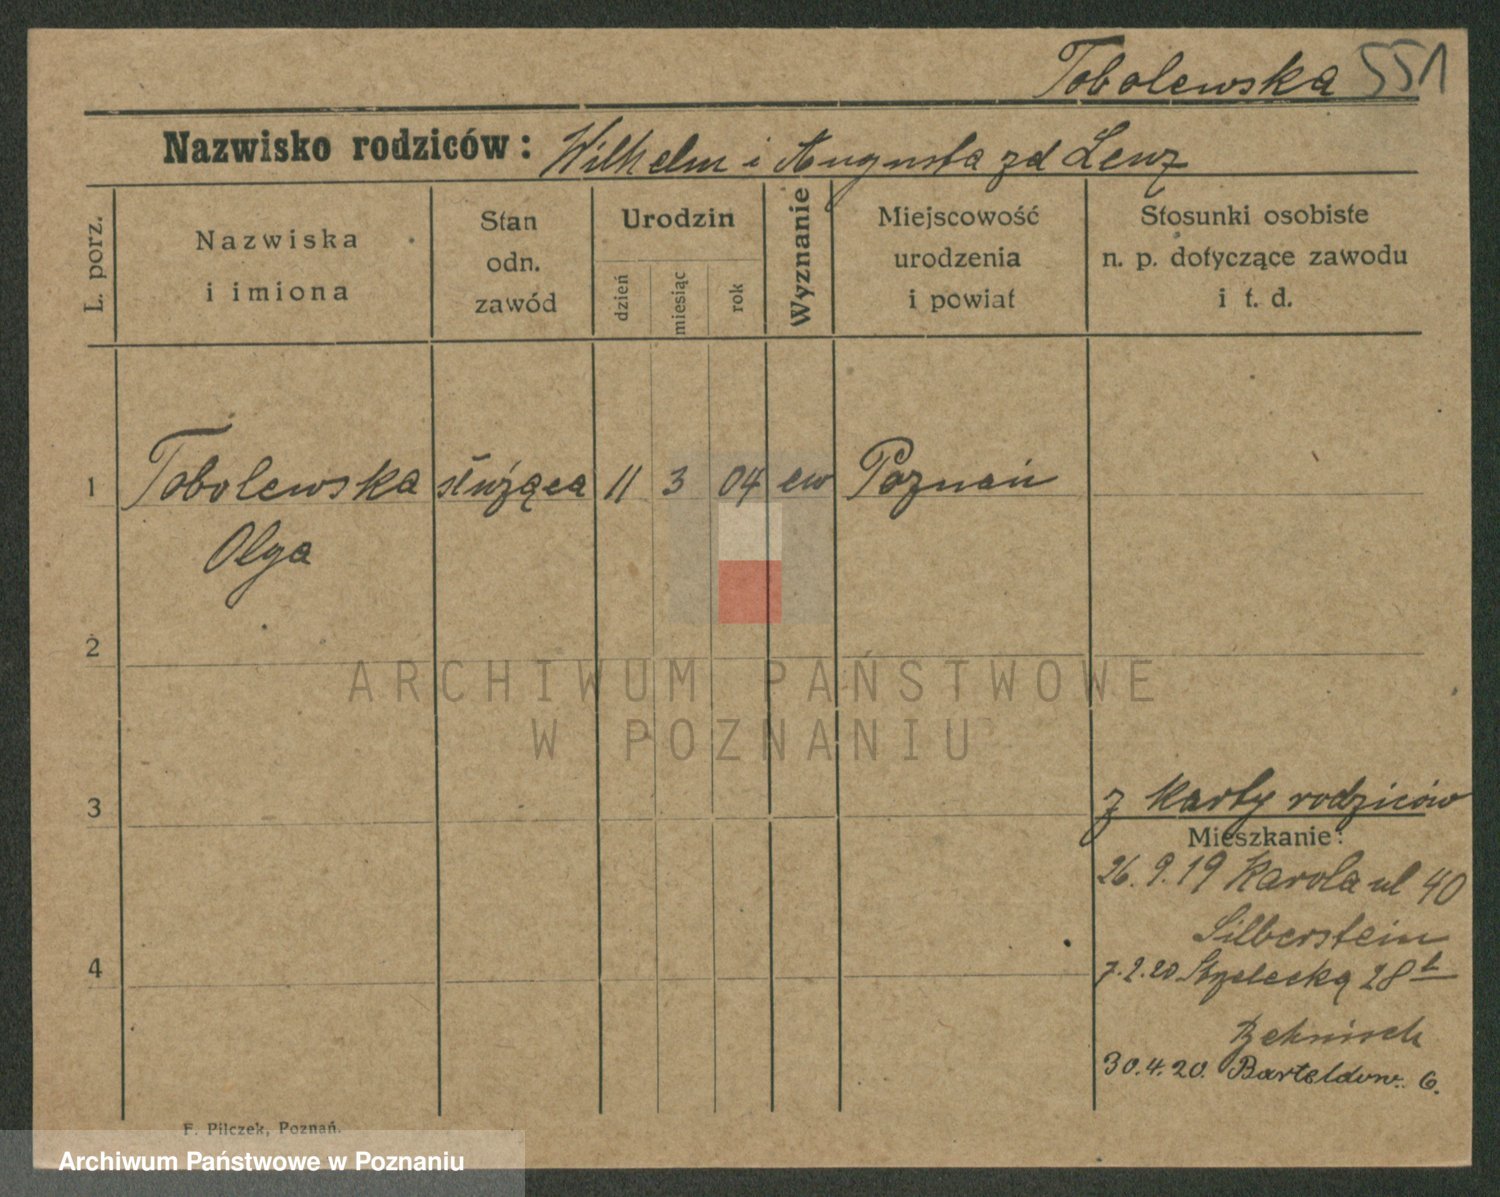 Tobolewska 551
Nazwisko rodziców: Wilhelm i Augusta zd Lenz
L. porz.
Nazwiska
i imiona
Stan
odn.
zawód
Urodzin
dzień
miesiąc
rok
Wyznanie
Miejscowość
urodzenia
i powiat
Stosunki osobiste
n. p. dotyczące zawodu
i t. d.
1 Tobolewska służąca 11 3 04 ew Poznań
Olga
2
ARCHIWUM PAŃSTWOWE
W POZNANIU
3
z karty rodziców
Mieszkanie:
26.9.19 Karola ul 40
Silberstein
4
7.2.20 Strzelecka 28
30.4.20. Bartoldow. 6.
F. Pilczek, Poznań.
Archiwum Państwowe w Poznaniu